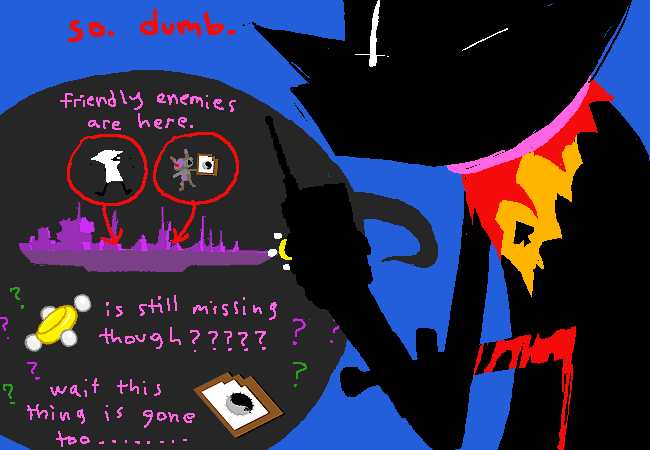 so. dumb.
friendly enemies
are here.
is still missing
though?????
? ? ? ? ? ? ?
wait this
thing is gone
too........